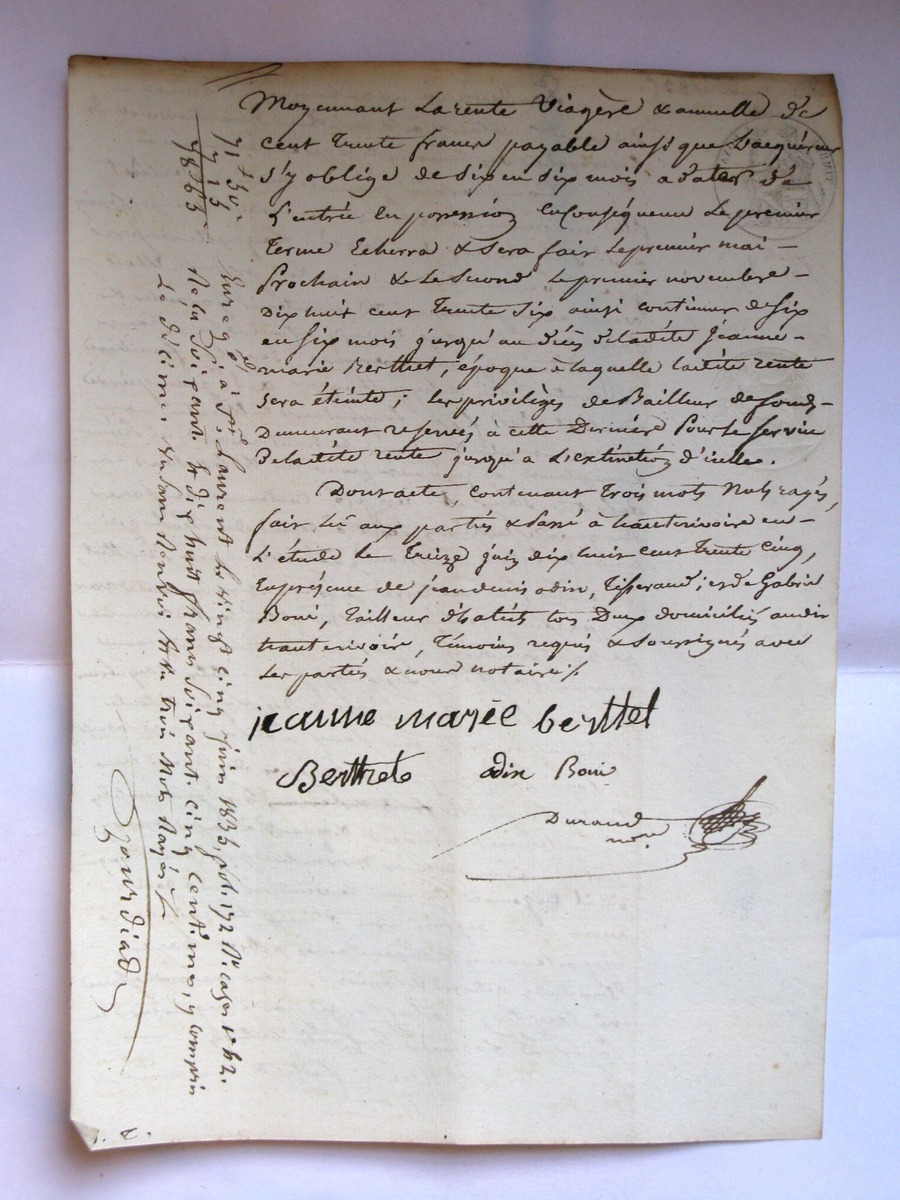 Moyennant la rente viagère & annuelle de
cent trente francs payable ainsi que l'acquéreur
s'y oblige de six en six mois à dater de
l'entrée en possession en conséquence le premier
terme echerra & sera fait le premier mai
prochain & le second le premier novembre
dix huit cent trente six ainsi continuer de six
en six mois jusqu'au décès de ladite jeanne
marie Berthet, époque à laquelle ladite rente
sera éteinte; les privilèges de Bailleur de fonds
demeurant reservés à cette dernière pour le service
de ladite rente jusqu'à l'extinction d'icelle.
Dont acte, contenant trois mots nuls rayés,
fait lu aux parties & passé à hauterivoire en
l'étude le treize juin dix huit cent trente cinq,
en présence de jean denis odin, tisserand; et de Gabriel
Boni, tailleur d'habits tous deux domiciliés audit
hauterivoire, témoins requis & soussignés avec
les parties & nous notaire /.
jeanne marie berthet
Berthet odin Boni
Durand
nore
71 50
7 15
78 65
Enregé à St Laurent le vingt cinq juin 1835, fol. 172 Vo cases 1 & 2.
Reçu soixante & dix huit francs soixante cinq centimes, y compris
le décime.
trois mots rayés